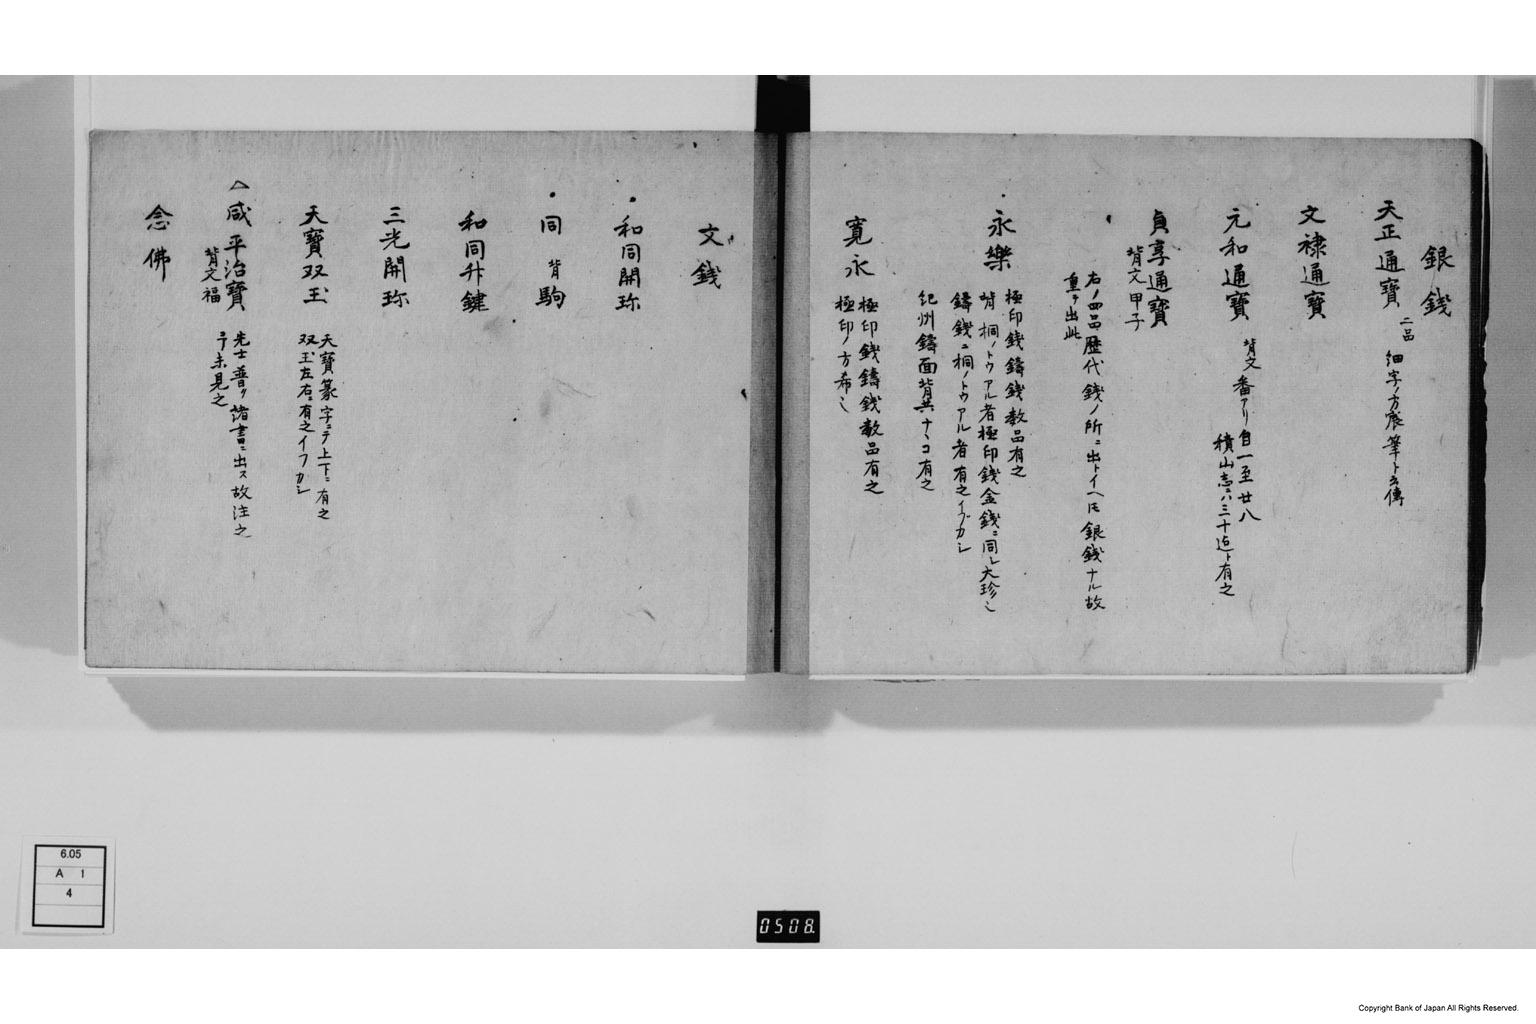 銀錢
天正通寶 二品 細字ノ方宸筆ト云傳
文祿通寶
元和通寶 背文 番アリ自一至廿八
積山志ニハ三十迠ト有之
貞享通寶
背文甲子
右ノ四品歴代錢ノ所ニ出トイヘ𪜈銀錢ナル故
重テ出此
・永樂 極印錢鑄錢数品有之
背桐ノトウアル者極印錢金錢ニ同シ大珍也
鑄錢ニ桐ノトウアル者有之イブカシ
紀州鑄面背共ナヽコ有之
寛永 極印錢鑄錢数品有之
極印ノ方希也
文錢
・和同開珎
・同 背駒
和同升鍵
三光開珎
天寶双玉 天寶篆字ニテ上下ニ有之
双玉左右ニ有之イフカシ
△咸平治寶 先士普ク諸書ニ出ス故注之
背文福 未見之
念佛
6.05
A 1
4
0508
Copyright Bank of Japan All Rights Reserved.